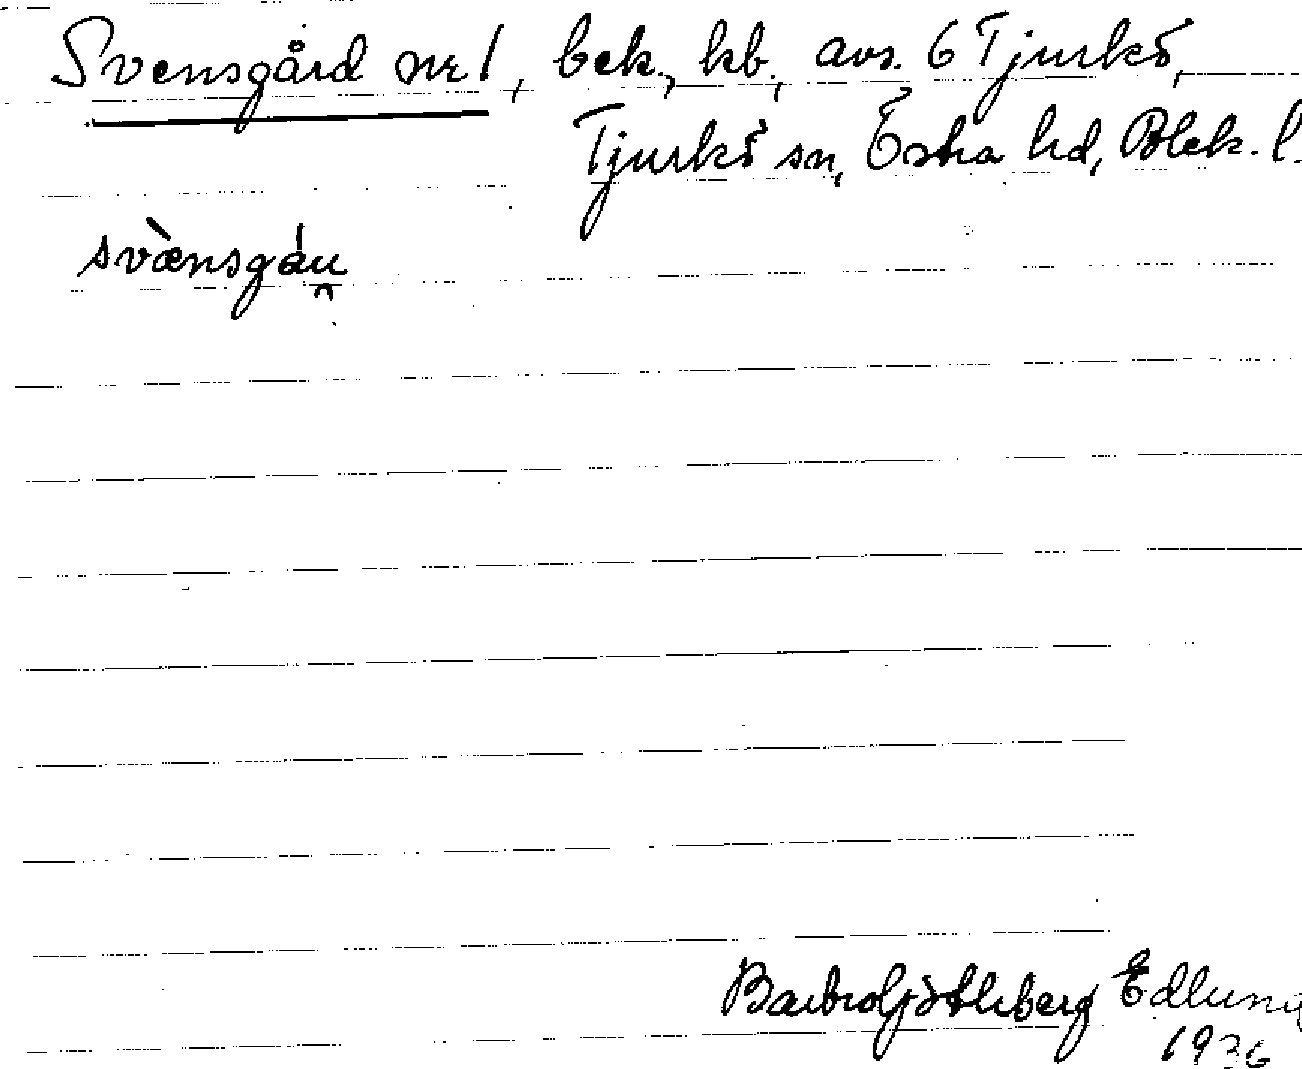 Svensgård nr 1, bek., kb., avs. 6 Tjurkö,
Tjurkö sn, Östra hd, Blek. l.
svànsgáu̯
Barbro Götleberg Edlund
1936